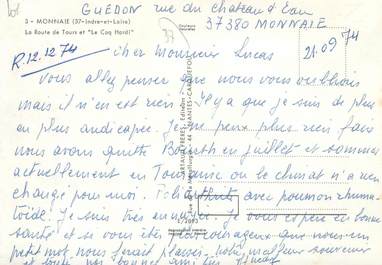 GUÉDON rue du château d'Eau
37380 MONNAIE
3 - MONNAIE (37-Indre-et-Loire)
La Route de Tours et "Le Coq Hardi"
R.12.12.74
21.09.74
Cher Monsieur Lucas
Vous allez penser que nous vous oublions
mais il n'en est rien Il y a que je suis de plus
en plus andicapée. Je ne peux plus rien faire
nous avons quitté en juillet et sommes
actuellement en Touraine ou le climat n'a rien
changé pour moi. avec poumon rhuma-
toïde. Je suis très Je vous espère en bonne
santé et si vous êtes courageux que nous un
petit mot nous ferait plaisir. meilleur souvenir
et toute nos bonnes amitiés